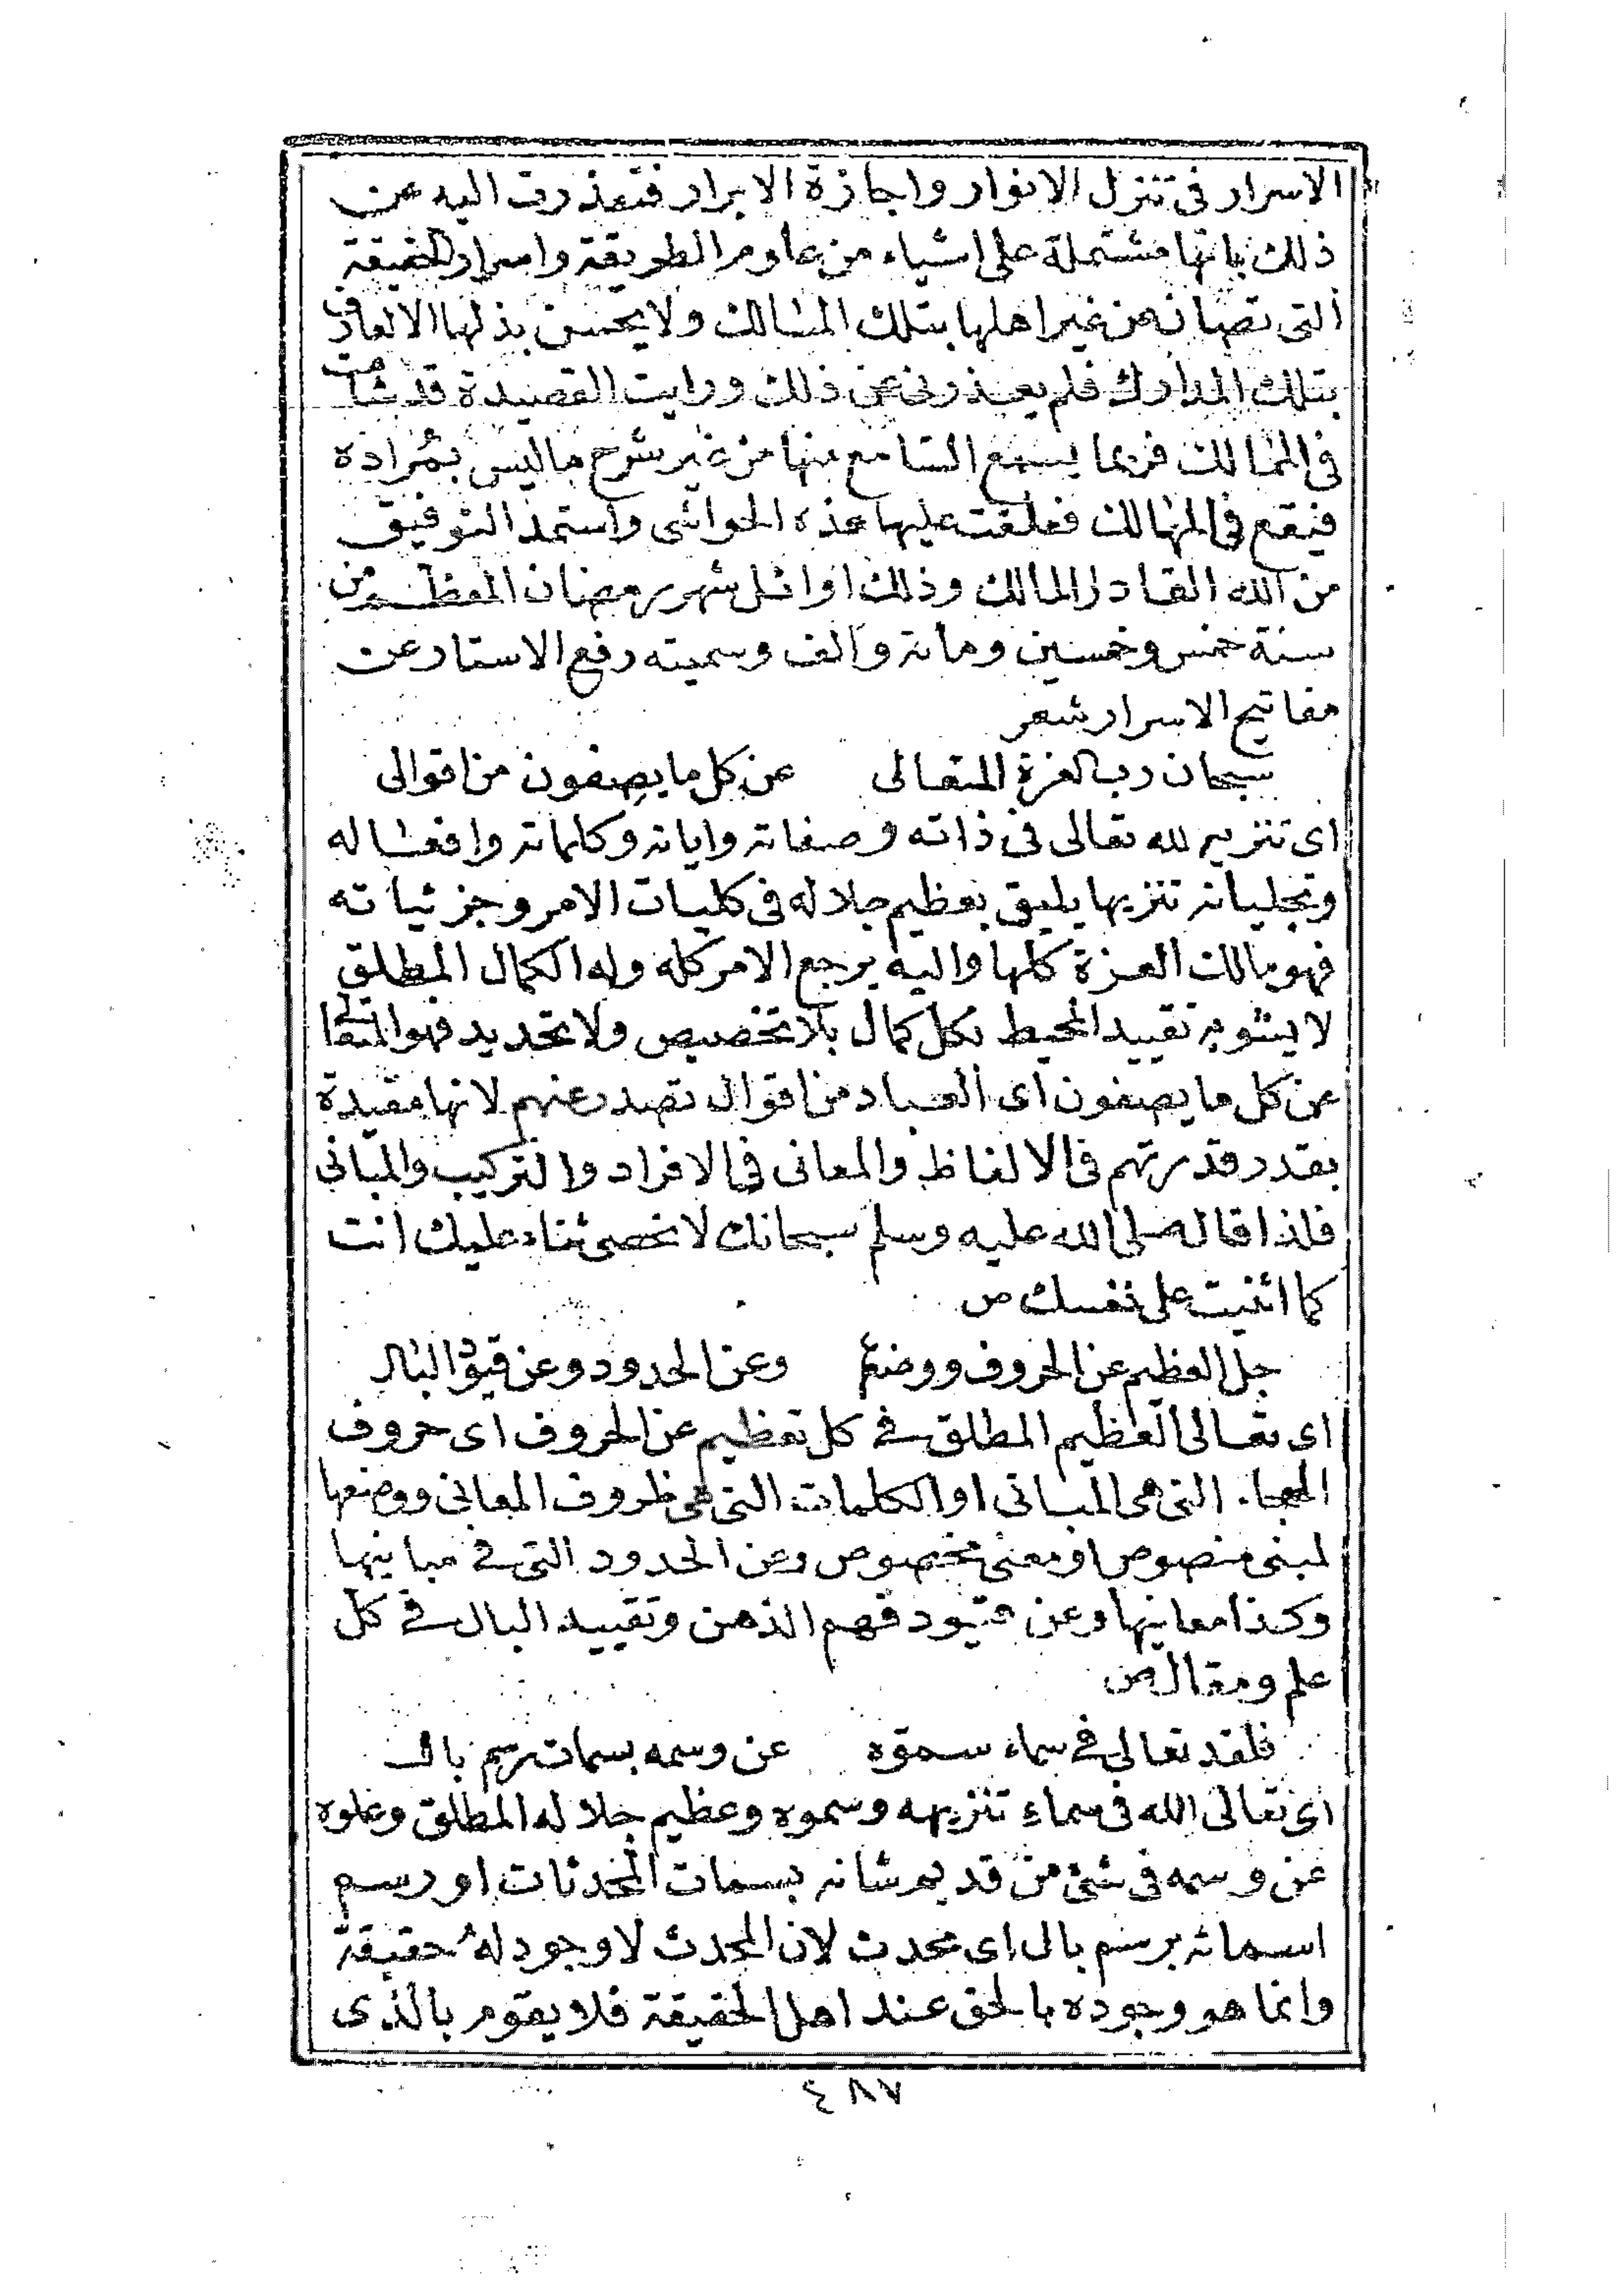 الاسرار فى تنزل الانوار واجازة الابرار فتعذرت اليه عن
ذلك بانها مشتملة على اشياء من علوم الطريقة واسرار الحقيقة
التى تصان عن غير اهلها بتلك المسالك ولا يحسن بذلها الا لعارف
بتلك المدارك فلم يعذرنى عن ذلك ورايت القصيدة قد شاعت
فى الممالك فربما يسمع السامع منها من غير شرح ما ليس بمراده
فيقع فى المهالك فعلقت عليها هذه الحواشى واستمد التوفيق
من الله القادر المالك وذلك اوائل شهر رمضان المعظم من
سنة خمس وخمسين ومائة والف وسميته رفع الاستار عن
مفاتيح الاسرار شعر
سبحان رب العزة المتعالى عن كل ما يصفون من اقوالى
اى تنزيه لله تعالى فى ذاته وصفاته واياته وكلماته وافعاله
وتجلياته تنزيها يليق بعظيم جلاله فى كليات الامر وجزئياته
فهو مالك العزة كلها واليه يرجع الامر كله وله الكمال المطلق
لا يشوبه تقييد المحيط بكل كمال بلا تخصيص ولا تحديد فهو المتعالى
عن كل ما يصفون اى العباد من اقوال تصدر عنهم لانها مقيدة
بقدر قدرتهم فى الالفاظ والمعانى فى الافراد والتركيب والمبانى
فلذا قال صلى الله عليه وسلم سبحانك لا نحصى ثناء عليك انت
كما اثنيت على نفسك ص
جل العظيم عن الحروف ووضعها وعن الحدود وعن قيود البال
اى تعالى العظيم المطلق فى كل تعظيم عن الحروف اى حروف
الهجاء التى هى المبانى او الكلمات التى هى ظروف المعانى ووضعها
لمبنى منصوص او معنى مخصوص وعن الحدود التى فى مبانيها
وكذا معانيها وعن قيود فهم الذهن وتقييد البال فى كل
علم ومقال ص
فلقد تعالى فى سماء سموه عن وسمه بسمات رسم بال
اى تعالى الله فى سماء تنزيهه وسموه وعظيم جلاله المطلق وعلوه
عن وسمه فى شئ من قديم شانه بسمات المحدثات او رسم
اسمائه برسم بال اى محدث لان المحدث لا وجود له حقيقة
وانما هو وجوده بالحق عند اهل الحقيقة فلا يقوم بالذى
٤٨٧